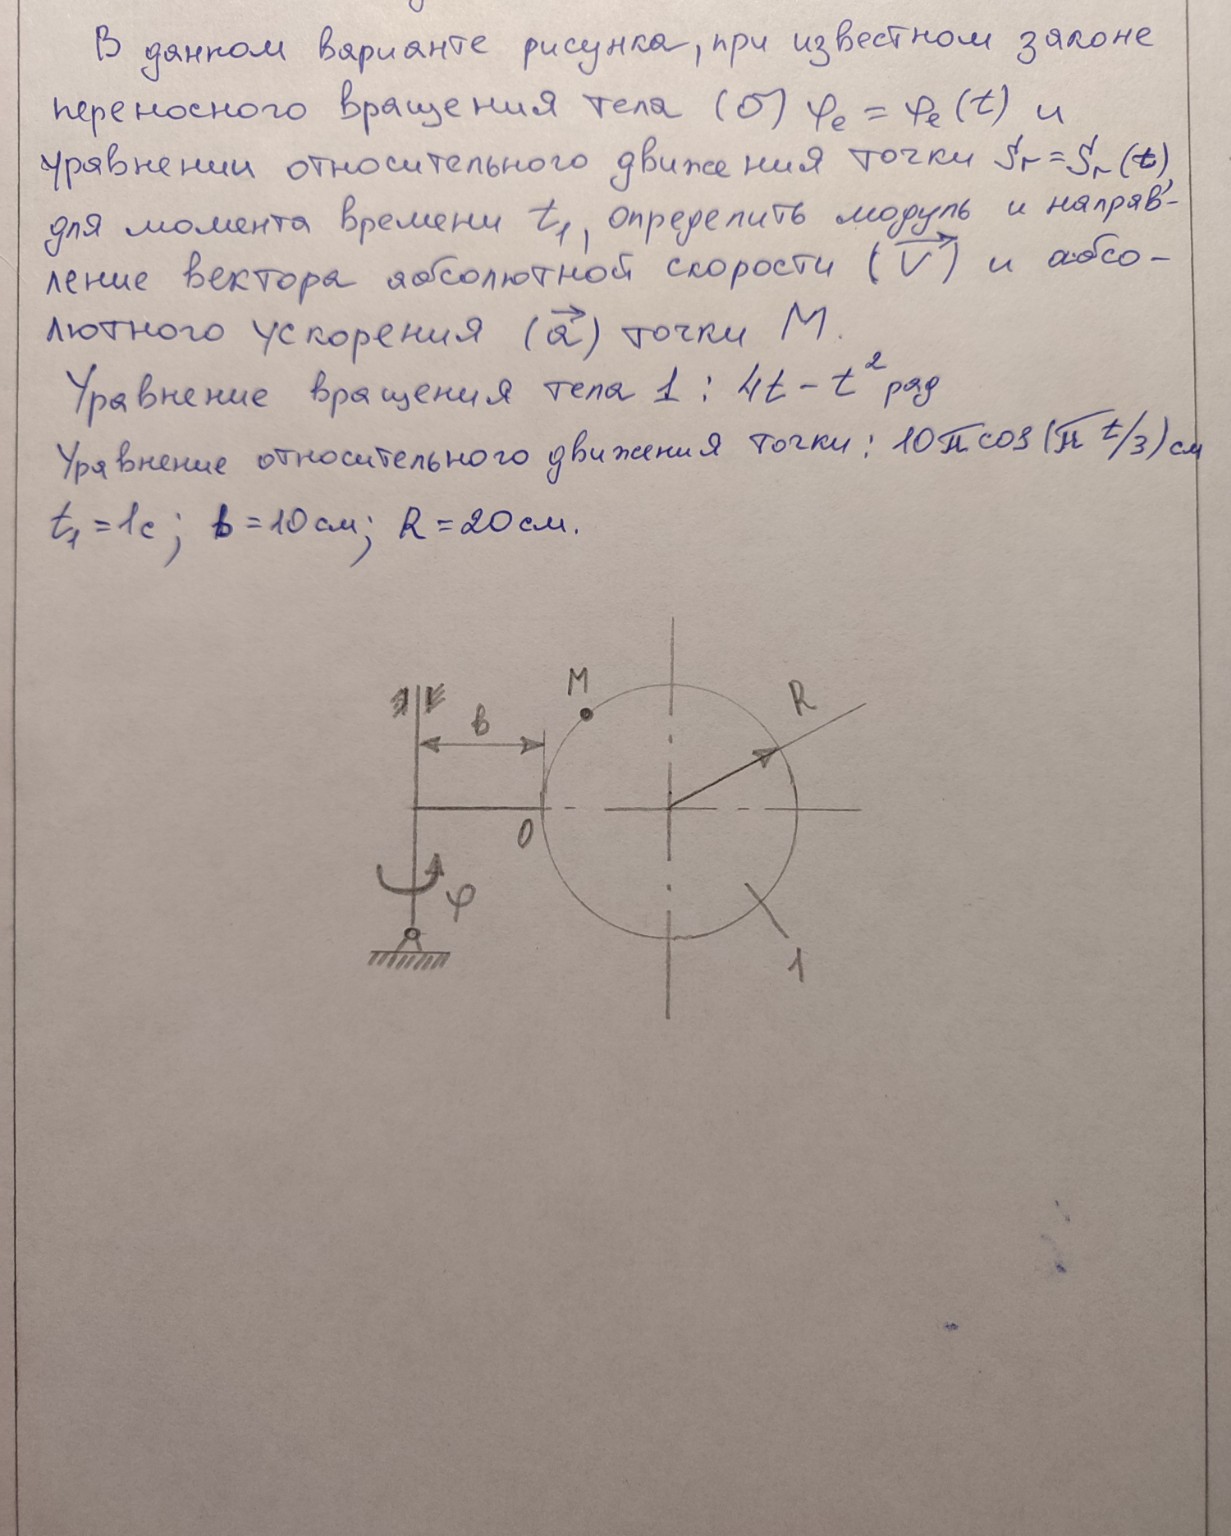 В данном варианте рисунка, при известном законе
переносного вращения тела (б) φe = φe(t) и
уравнении относительного движения точки Sr = Sr(t),
для момента времени t₁, определить модуль и направ-
ление вектора абсолютной скорости (V⃗) и абсо-
лютного ускорения (a⃗) точки M.
Уравнение вращения тела 1: 4t - t² рад
Уравнение относительного движения точки: 10π cos(π t/3) см
t₁ = 1c; b = 10 см; R = 20 см.
M
R
b
O
φ
1